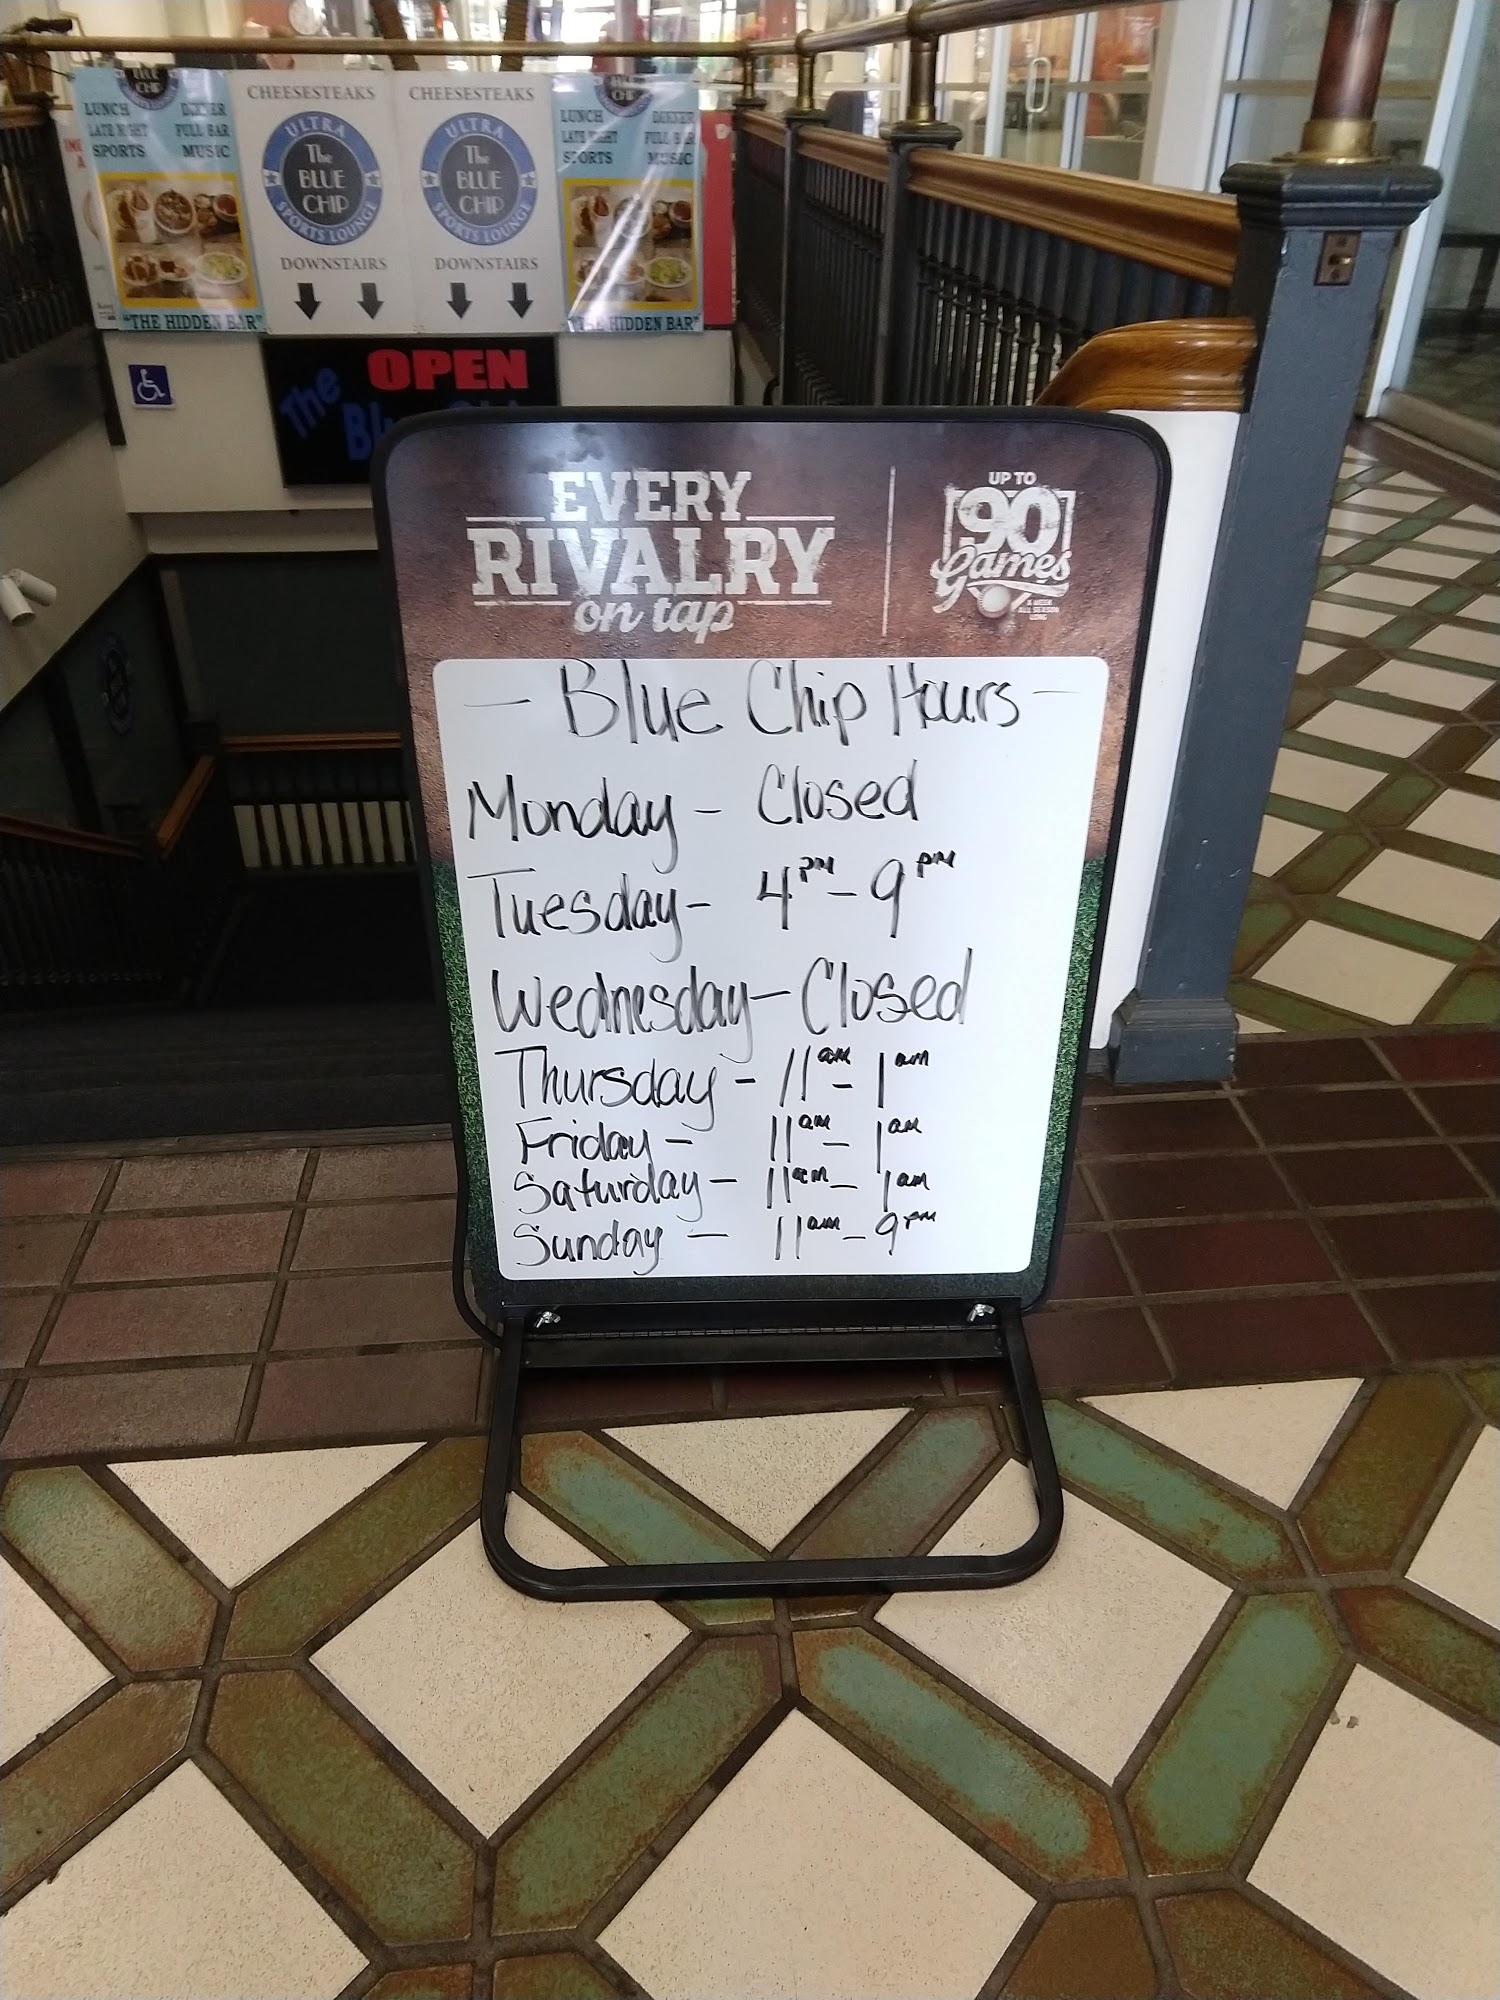 LUNCH DINNER
LATE NIGHT FULL BAR
SPORTS MUSIC
"THE HIDDEN BAR"
CHEESESTEAKS
ULTRA
The
BLUE
CHIP
SPORTS LOUNGE
DOWNSTAIRS
CHEESESTEAKS
ULTRA
The
BLUE
CHIP
SPORTS LOUNGE
DOWNSTAIRS
CHIP
LUNCH DINNER
LATE NIGHT FULL BAR
SPORTS MUSIC
"THE HIDDEN BAR"
OPEN
The
EVERY
RIVALRY
on tap
UP TO
90
Games
A WEEK
ALL SEASON
LONG
- Blue Chip Hours -
Monday - Closed
Tuesday - 4pm - 9pm
Wednesday - Closed
Thursday - 11am - 1am
Friday - 11am - 1am
Saturday - 11am - 1am
Sunday - 11am - 9pm